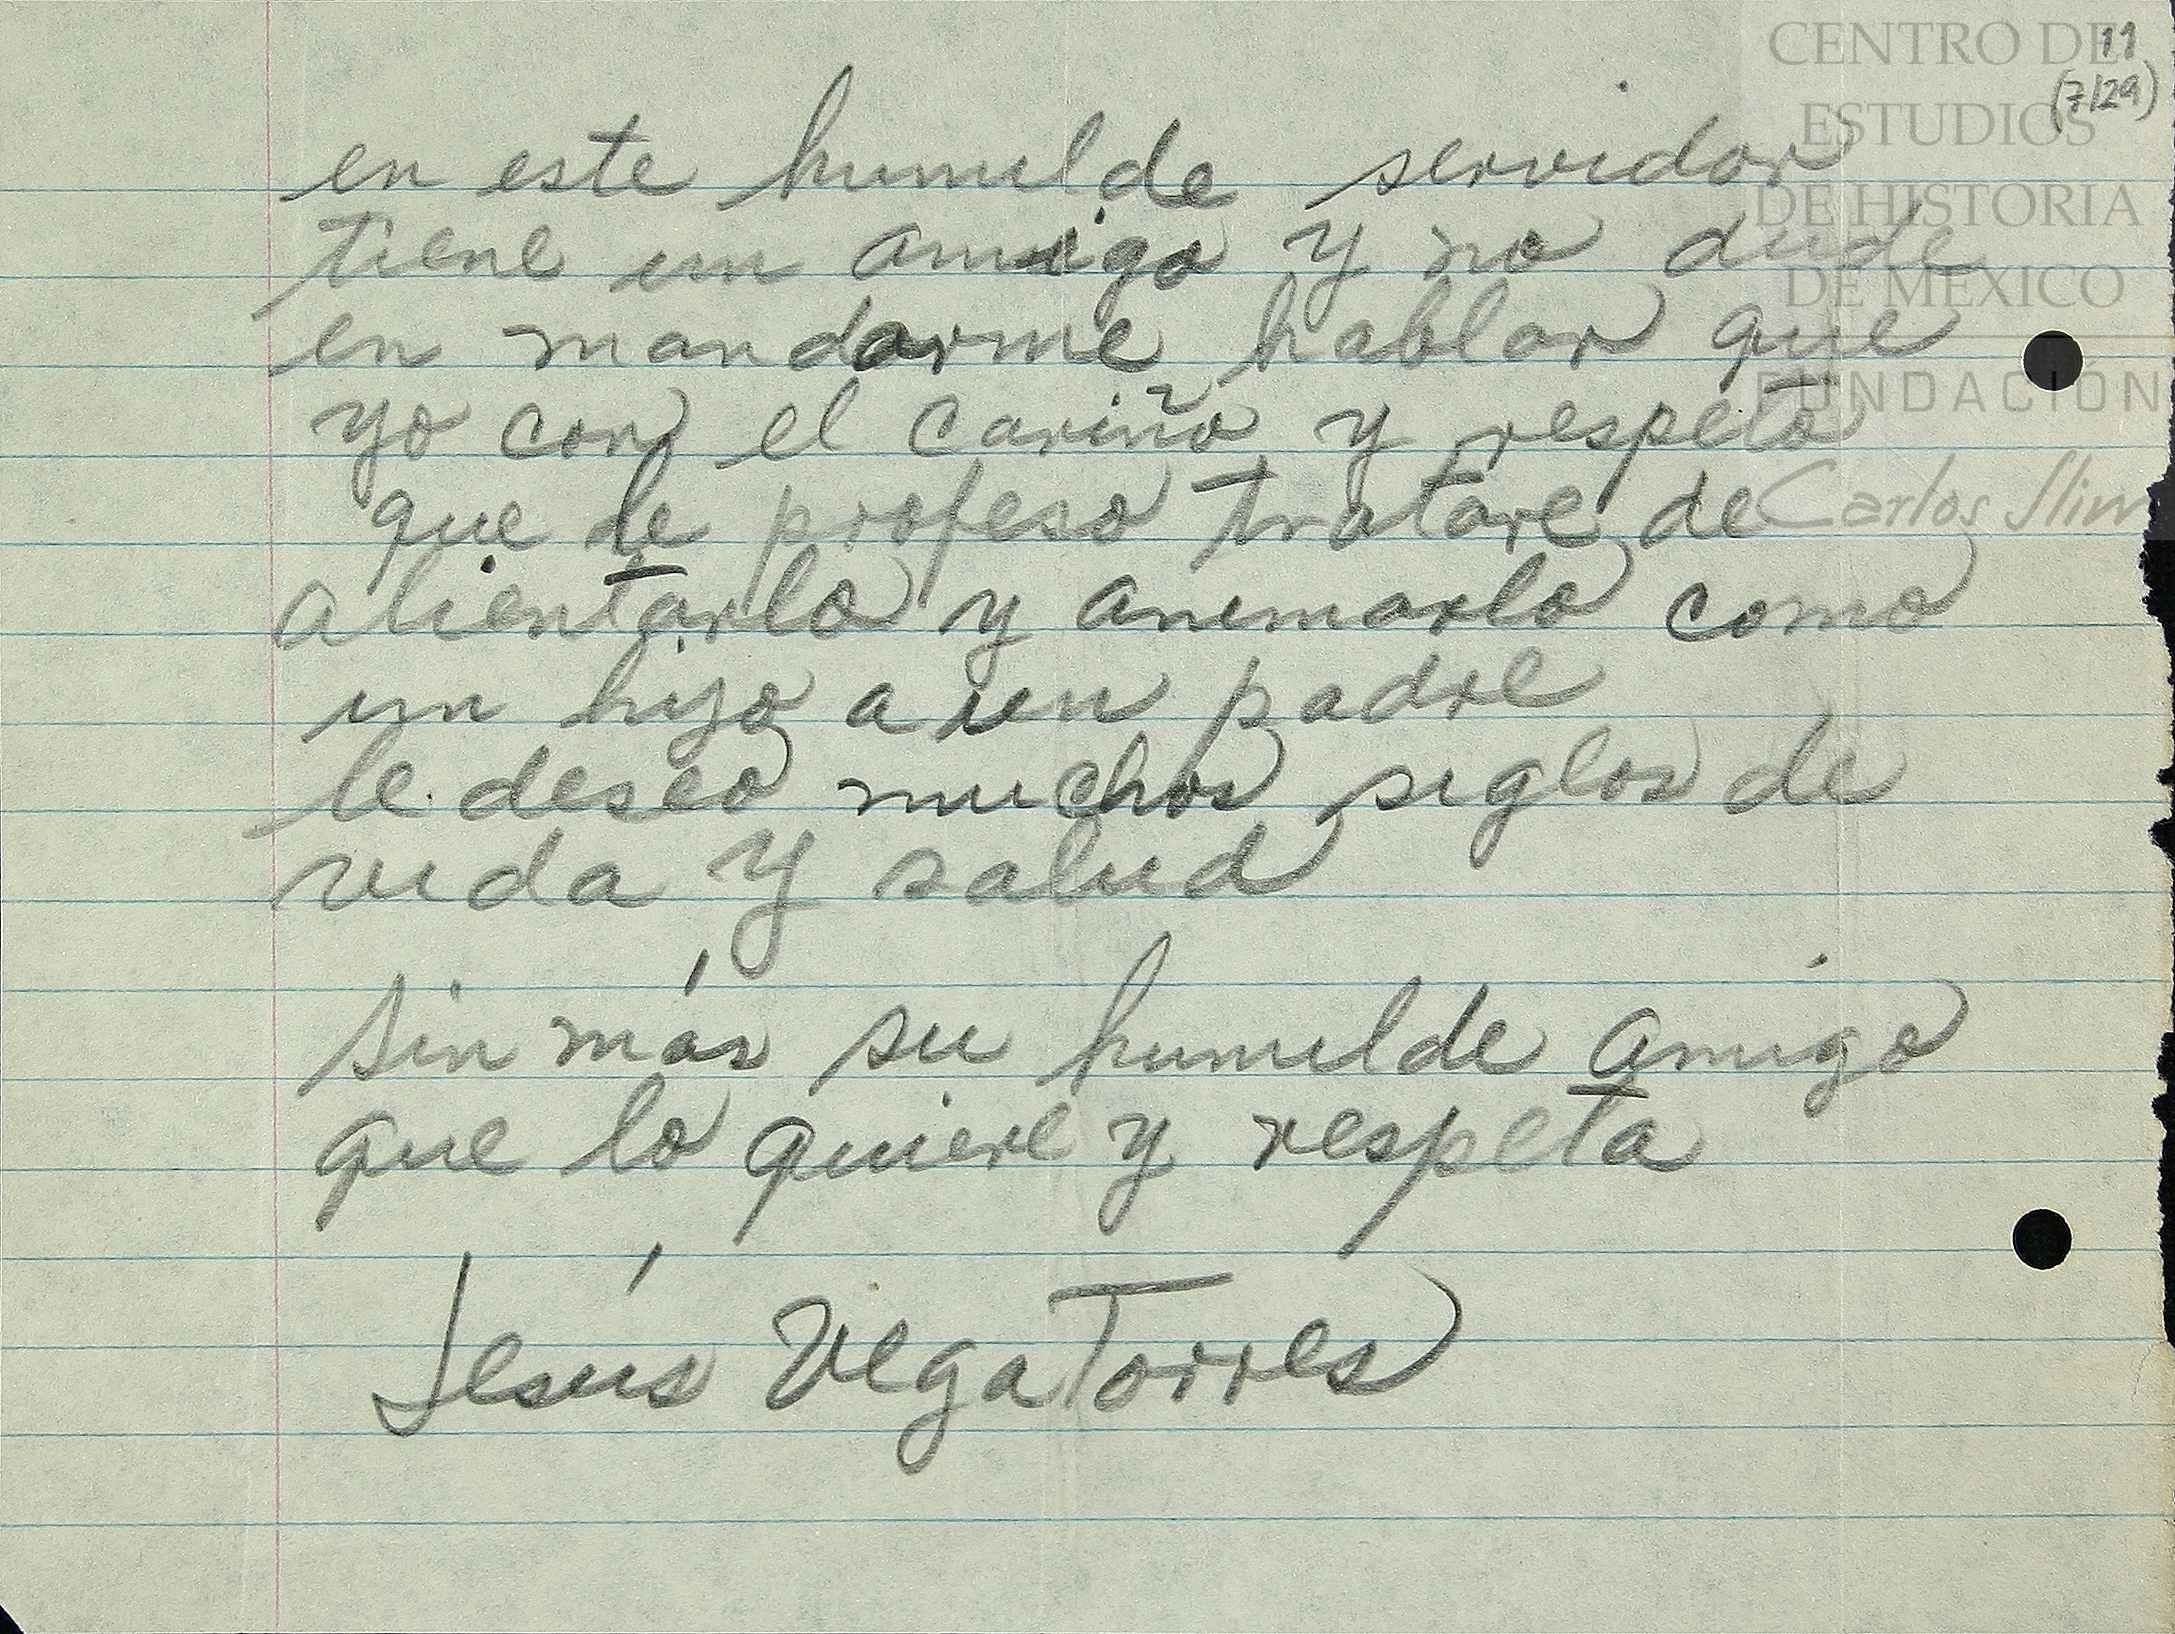 CENTRO DE
ESTUDIOS
DE HISTORIA
DE MÉXICO
FUNDACIÓN
Carlos Slim
11
(7/29)
en este humilde servidor
tiene un amigo y no dude
en mandarme hablar que
yo con el cariño y respeto
que le profeso tratare de
alientarlo y animarlo como
un hijo a un padre
le deseo muchos siglos de
vida y salud
Sin más su humilde amigo
que lo quiere y respeta
Jesús Vega Torres